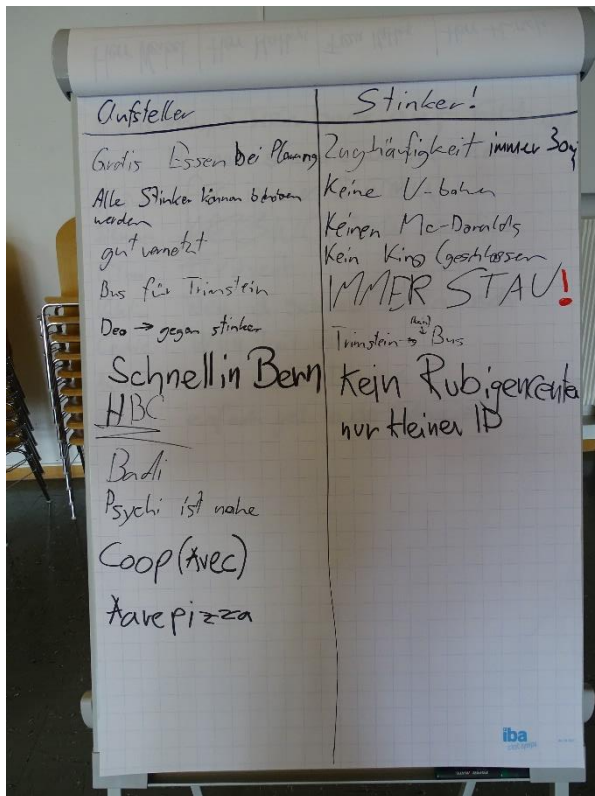 Aufsteller
Gratis Essen bei Planung
Alle Stinker können behoben
werden
gut vernetzt
Bus für Trimstein
Deo → gegen stinker
Schnell in Bern
HBC
Badi
Psychi ist nahe
Coop (Avec)
Aarepizza
Stinker!
Zughäufigkeit immer 30
Keine U-bahn
Keinen Mc-Donalds
Kein King (geschlossen
IMMER STAU!
(kein)
Trimstein → Bus
Kein Rubigencenter
nur kleiner
iba